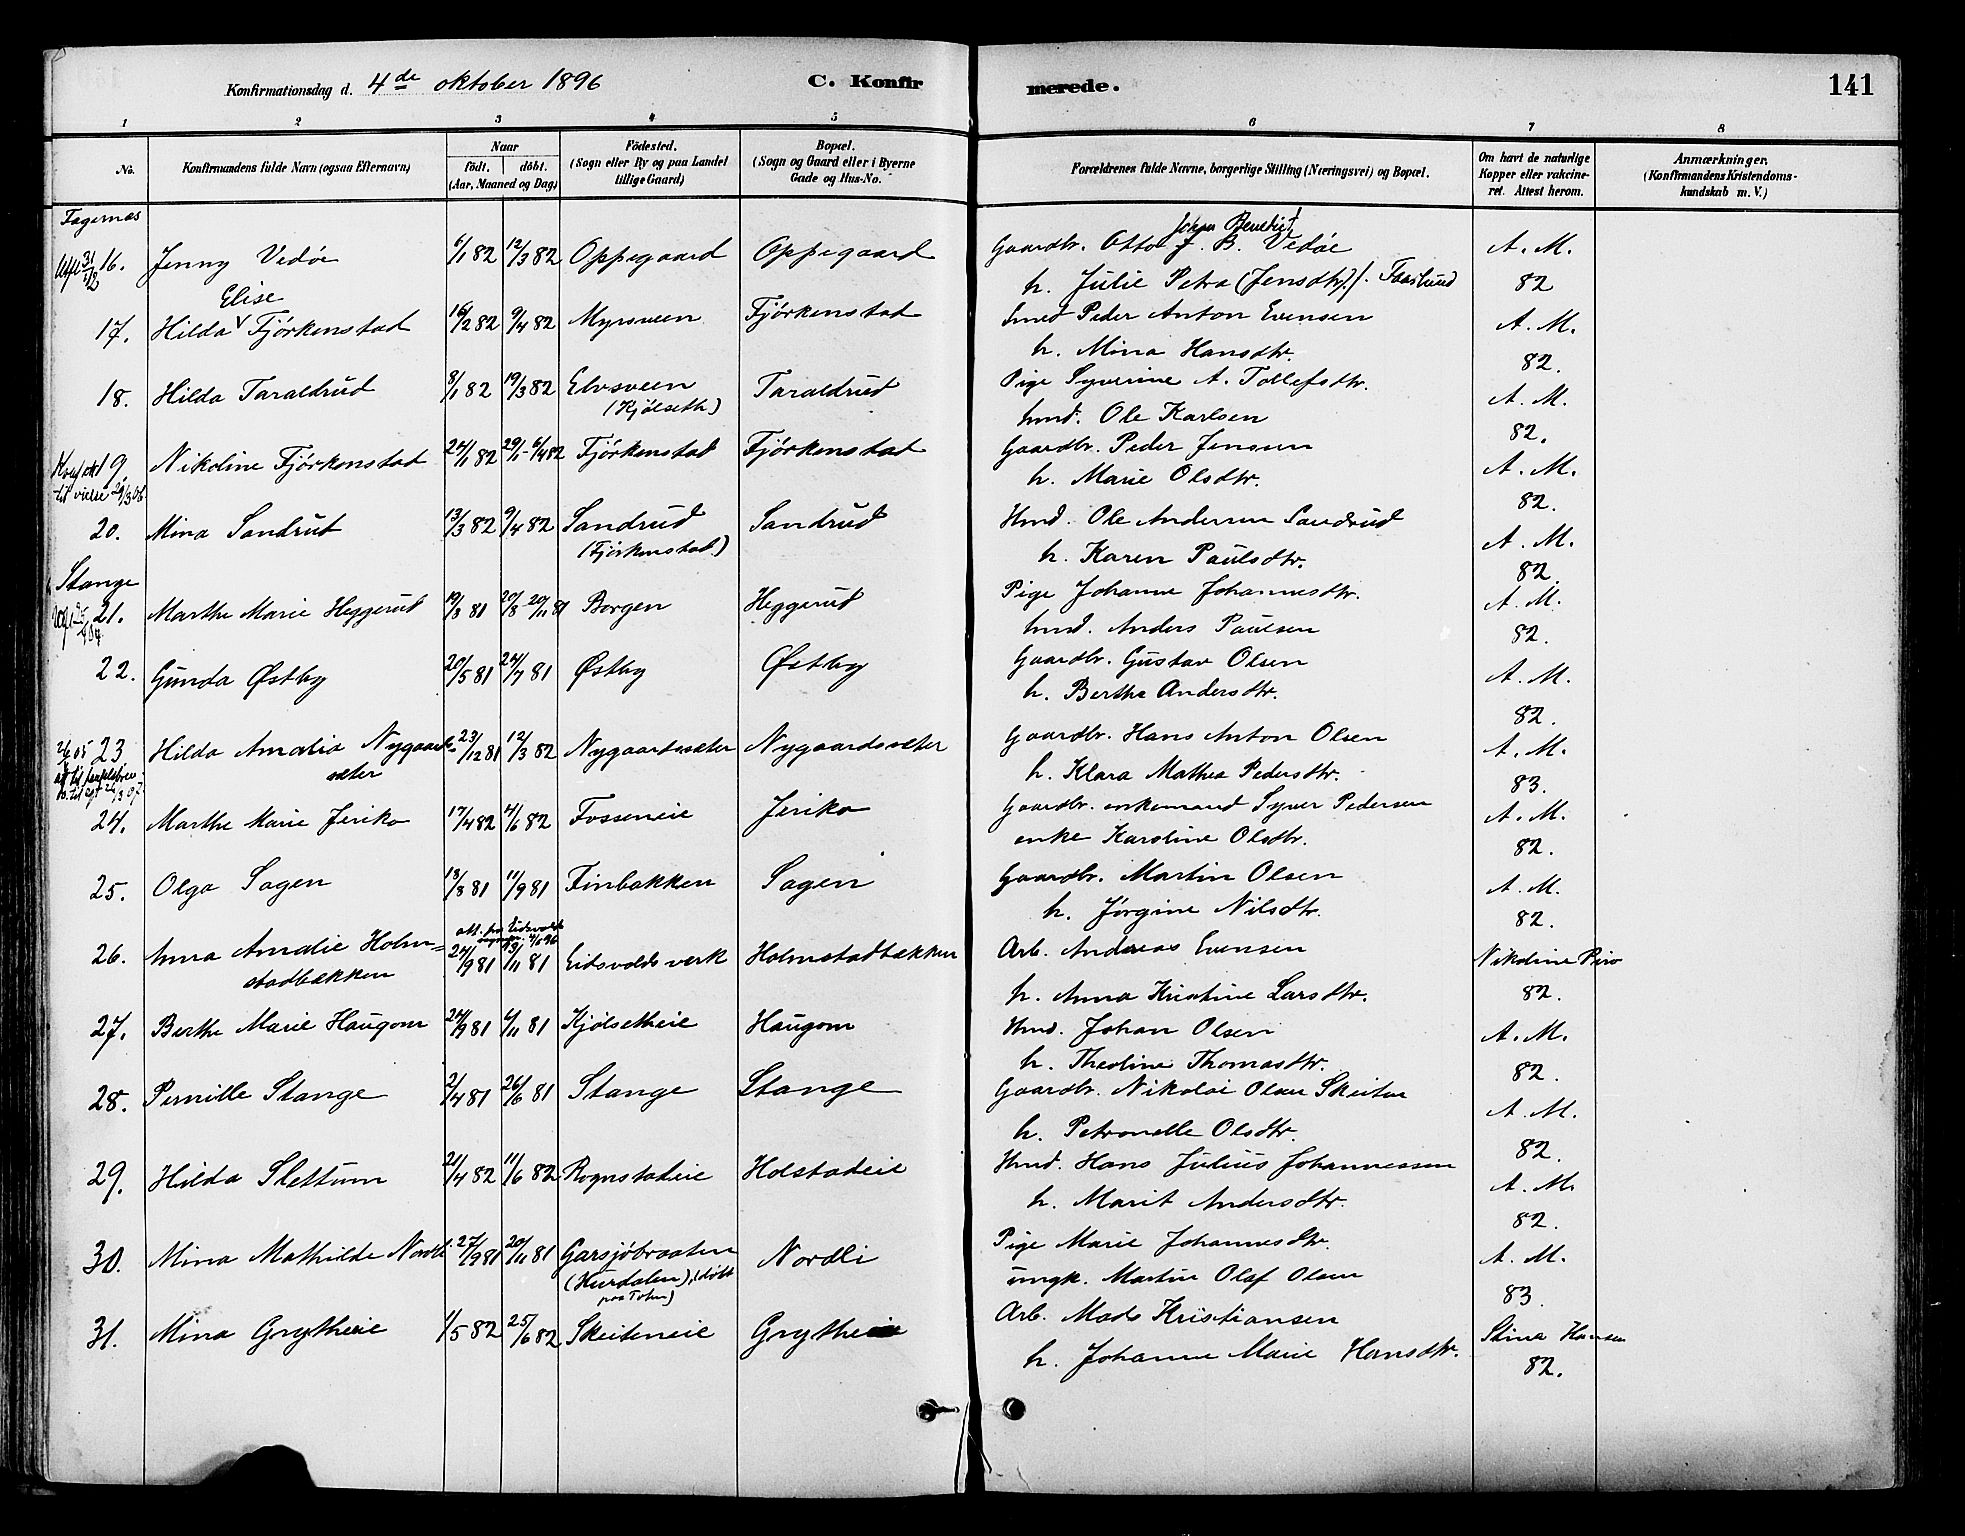 Konfirmationsdag d. 4de oktober 1896 C. Konfirmerede. 141
1 2 3 4 5 6 7 8
No. Konfirmandens fulde Navn (ogsaa Efternavn) Naar födt. döbt. (Aar, Maaned og Dag) Födested. (Sogn eller By og paa Landet tillige Gaard) Bopæl. (Sogn og Gaard eller i Byerne Gade og Hus-No. Forældrenes fulde Navne, borgerlige Stilling (Næringsvei) og Bopæl. Om havt de naturlige Kopper eller vakcineret. Attest herom. Anmærkninger. (Konfirmandens Kristendomskundskab m. V.)
Fagernæs
16. Jenny Vedöe 6/1 82 12/3 82 Oppegaard Oppegaard Gaardbr. Otto J. B. Vedöe A. M.
Johan Benedict
h. Julie Petra (Jensdtr.) f. Faaslund 82
Elise
17. Hilda V Fjörkenstad 16/2 82 9/4 82 Myrsveen Fjörkenstad Smed Peder Anton Evensen A. M.
h. Mina Hansdtr. 82.
18. Hilda Taraldrud 8/1 82 19/3 82 Elvsveen (Kjölseth) Taraldrud Pige Syverine A. Tollefsdtr. A. M.
hmd. Ole Karlsen 82.
19. Nikoline Fjörkenstad 24/1 82 29/1 - 6/4 82 Fjörkenstad Fjörkenstad Gaardbr. Peder Jensen A. M.
til vielse 29/3 06
h. Marie Olsdtr. 82.
20. Mina Sandrud 13/3 82 9/4 82 Sandrud (Fjörkenstad) Sandrud Hmd. Ole Andersen Sandrud A. M.
h. Karen Paulsdtr. 82.
Stange
21. Marthe Marie Heggerud 19/8 81 20/8 - 20/11 81 Borgen Heggerud Pige Johanne Johannesdtr. A. M.
hmd. Anders Paulsen 82.
22. Gunda Østby 20/5 81 24/7 81 Østby Østby Gaardbr. Gustav Olsen A. M.
h. Berthe Andersdtr. 82.
23. Hilda Amalia Nygaardsæter 23/12 81 12/3 82 Nygaardsæter Nygaardsæter Gaardbr. Hans Anton Olsen A. M.
h. Klara Mathea Pedersdtr. 83.
24. Marthe Marie Jeriko 17/4 82 4/6 82 Fosseneie Jeriko Gaardbr. enkemand Syver Pedersen A. M.
enke Karoline Olsdtr. 82.
25. Olga Sagen 13/8 81 11/9 81 Finbakken Sagen Gaardbr. Martin Olsen A. M.
h. Jörgine Nilsdtr. 82.
att. fra Eidsvold
26. Anna Amalie Holmstadbækken 24/9 81 13/11 81 Eidsvolds verk Holmstadbækken Arb. Andreas Evensen Nikoline Piro
h. Anna Kristine Larsdtr. 82.
27. Berthe Marie Haugom 24/9 81 6/11 81 Kjölsetheie Haugom Hmd. Johan Olsen A. M.
h. Theoline Thomasdtr. 82.
28. Pernille Stange 2/4 81 26/6 81 Stange Stange Gaardbr. Nikolai Olsen Skeiten A. M.
h. Petronelle Olsdtr. 82.
29. Hilda Slettum 21/4 82 11/6 82 Rognstadeie Holstadeie Hmd. Hans Julius Johannessen A. M.
h. Marit Andersdtr. 82.
30. Mina Mathilde Nordli 27/9 81 20/11 81 Garsjöbraaten (Hurdalen), (döbt paa Toten) Nordli Pige Marie Johannesdtr. A. M.
ungk. Martin Olaf Olsen 83.
31. Mina Grytheeie 1/5 82 25/6 82 Skeiteneie Grytheeie Arb. Mads Kristiansen Stina Hansen
h. Johanne Marie Hansdtr. 82.